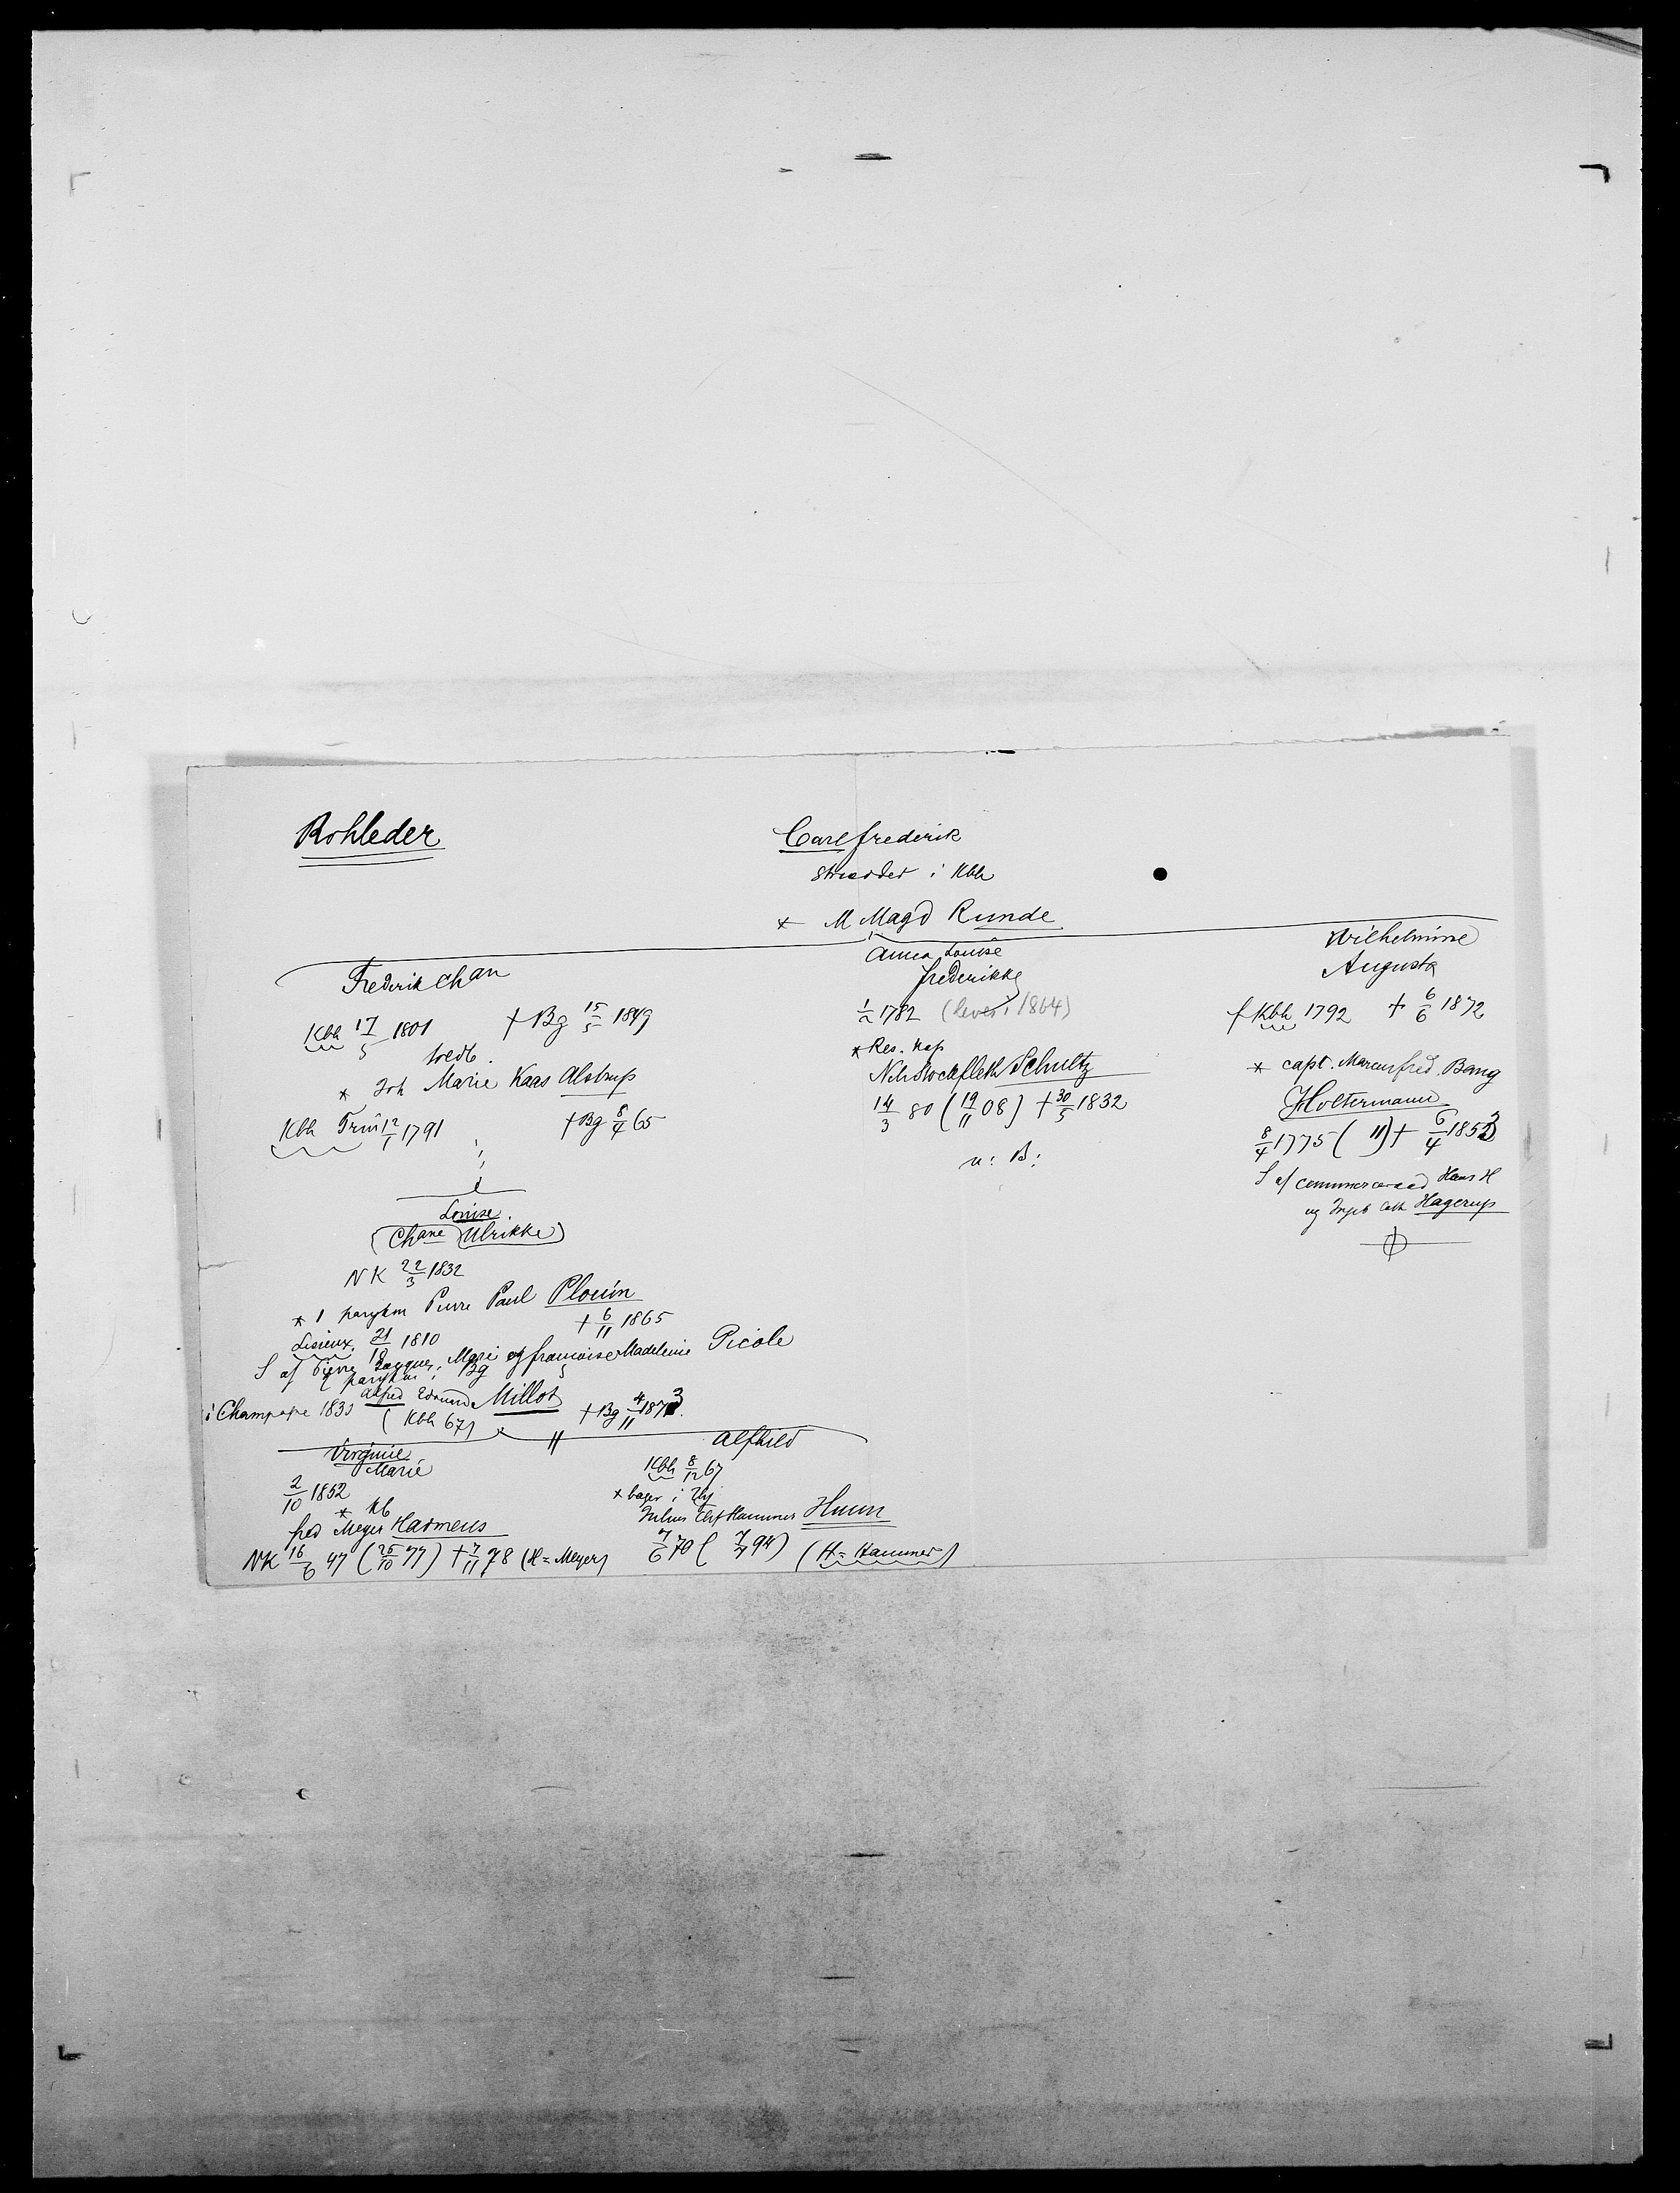 Rohleder
Carl frederik
i Kbh
* M Magd Runde
Frederik Chan
Kbh 17/5 1801 † Bg 15/5 1849
* Joh Marie Kaas Alstrup
Kbh Trin 12/1 1791 † Bg 8/4 65
Louise
(Chane Ulrikke)
NK 22/3 1832
* 1 parykm Pierre Paul Plouin
Lisieux 21/18 1810 † 6/11 1865
S af Pierre Jacques Marie og francoise Madeleine Picole
parykm i Bg
i Champagne 1833 Alfred Edmund Millot
(Kbh 67) † Bg 4/11 1873
Virginie
Marie
2/10 1852
* kb
fred Meyer Harmens
NK 16/6 47 (25/10 77) † 7/11 78 (H = Meyer)
Alfhild
Kbh 8/12 67
* bager i
Julius Hammer Huun
7/6 70 ( 7/7 94) (H = Hammer)
Anna Louise
frederikke
1/2 1782 (lever i 1864)
* Res. kap
Nils Stockfleth Schultz
14/3 80 (19/11 08) † 30/5 1832
u: B:
Wilhelmine
Augusta
f Kbh 1792 † 6/6 1872
* capt. Marcus fred. Bang
Holtermann
8/4 1775 ( 11) † 6/4 1853
S af commerceraad Hans H
og Ingeb Cath Hagerup